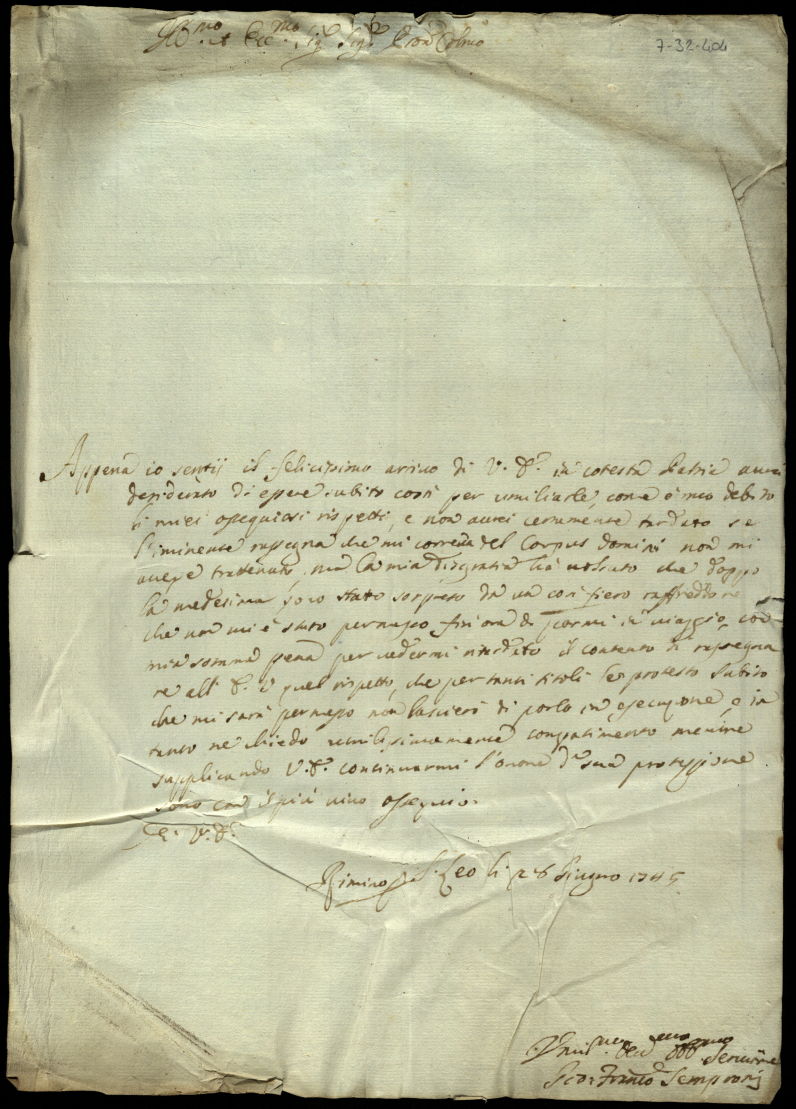 Ill.mo et Ecc.mo Sig.r Sig.r Pron Colmo
7-32-404
Appena io sentij il felicissimo arrivo di V. E. in cotesta Patria aurei
desiderato di essere subito costì per umiliarle, come è mio debito
li miei ossequiosi rispetti, e non aurei certamente tardato se
l'iminente rassegna che mi correva del Corpus Domini non mi
avesse trattenuto, ma la mia disgratia hà uoluto che doppo
la medesima sono stato sorpreso da un così fiero raffreddore
che non mi è stato permesso fin ora di pormi in uiaggio, con
mia somma pena per uedermi ritardato il contento di rassegna
re all' E. V. quel rispetto, che per tanti titoli le protesto. Subito
che mi sarà permesso non lascierò di porlo in esecuzione, e in
tanto ne chiedo umilissimamente compatimento mentre
supplicando V. E. continuarmi l'onore di sua protezzione
sono con il più uiuo ossequio.
Di V. E.
Rimino p S. Leo li 28 Giugno 1745
Umil.mo Deu.mo Obb.mo Seruitore
Franco Sempronij